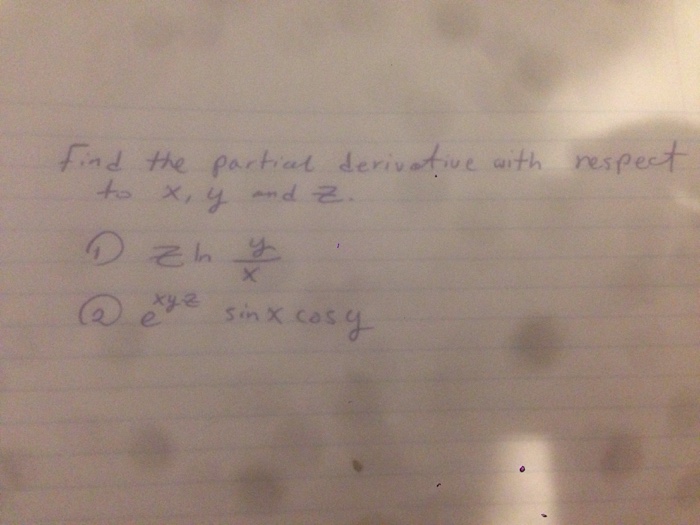 find the partial derivative with respect
to x, y and z.
① z ln y/x
② e^xyz sin x cos y